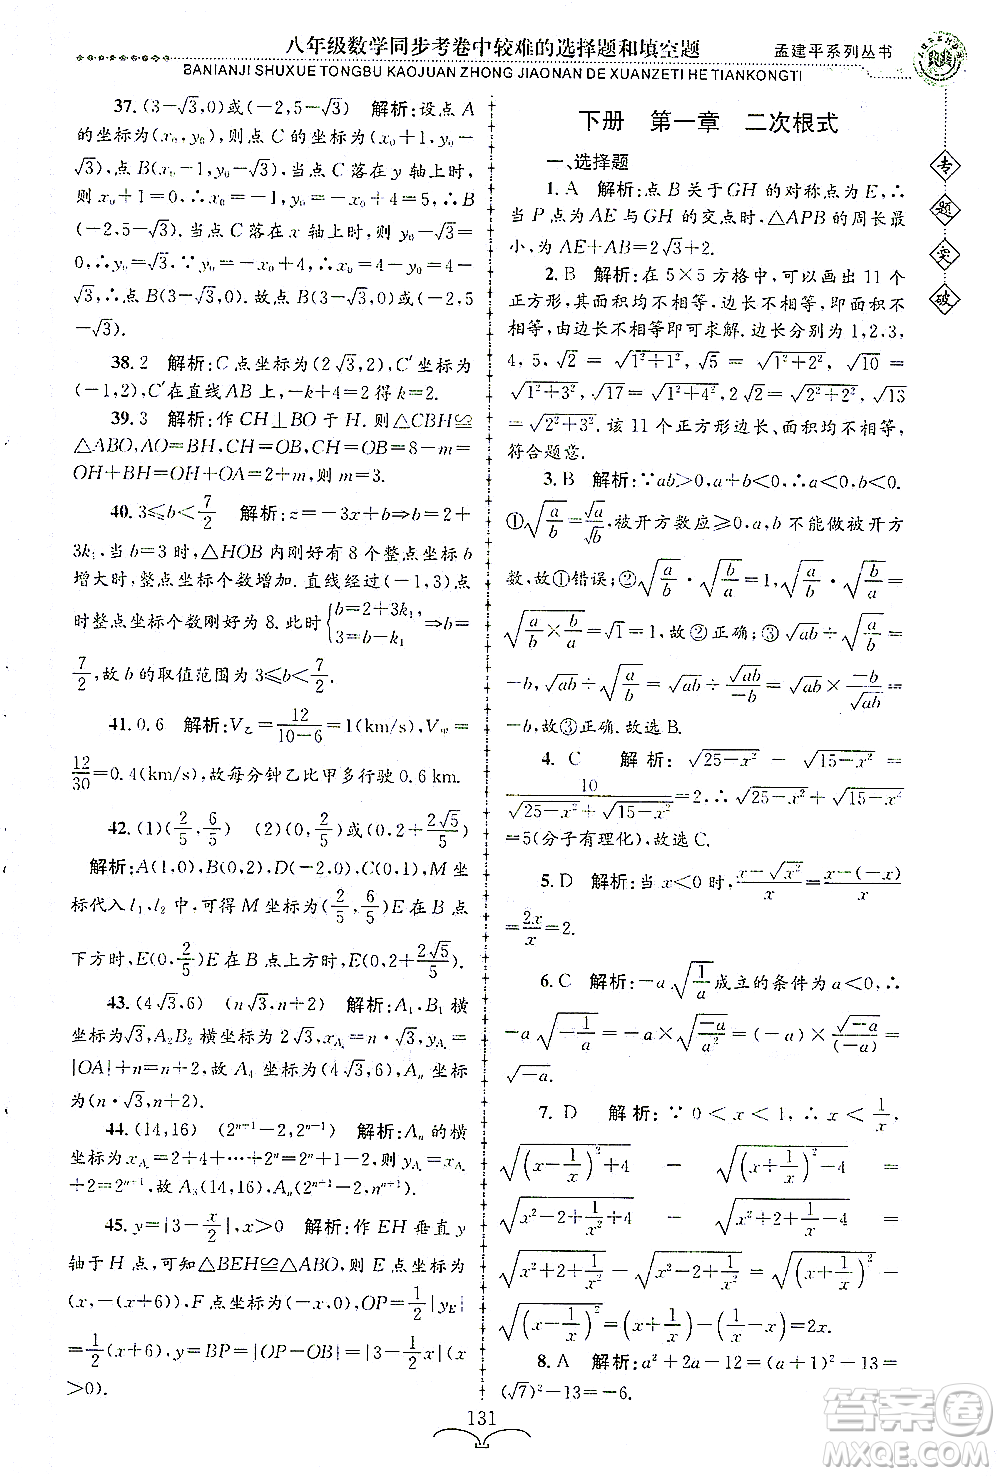 八年级数学同步考卷中较难的选择题和填空题
孟建平系列丛书
BANIANJI SHUXUE TONGBU KAOJUAN ZHONG JIAONAN DE XUANZETI HE TIANKONGTI
37. (3-√3,0)或(-2,5-√3) 解析:设点A
的坐标为(x₀,y₀),则点C坐标为(x₀+1,y₀-
√3),点B(x₀-1,y₀-√3).当点C落在y轴上时,
x₀+1=0,x₀=-1,y₀=-x₀+4=5,∴B
(-2,5-√3).当点C落在x轴上时,y₀-√3=
0,∴y₀=√3,代入y₀=-x₀+4得x₀=4-√3,
∴B(3-√3,0).故点B(3-√3,0)或B(-2,5
-√3).
38. 2 解析:C点坐标为(2√3,2),C′坐标为
(-1,2),C′在直线AB上,-k+4=2得k=2.
39. 3 解析:作CH⊥BO于H.则△CBH≌
△ABO,AO=BH,CH=OB,CH=OB=8-m=
OH+BH=OH+OA=2+m,∴m=3.
40. 3≤b<7/2 解析:z=-3x+b⇒b=2+
3k₁,当b=3时,△HOB内刚好有8个整点坐标b
增大时,整点坐标个数增加.直线经过(-1,3)点
时整点坐标个数刚好为8.此时{b=2+3k₁ 3=b-k₁⇒b=
7/2,故b的取值范围为3≤b<7/2.
41. 0.6 解析:V乙=12/(10-6)=1(km/s),V甲=
12/30=0.4(km/s),故每分钟乙比甲多行驶0.6km.
42. (1)(2/5,6/5) (2)(0,2/5)或(0,2+2√5/5)
解析:A(1,0),B(0,2),D(-2,0),C(0,1),M坐
标代入l₁,l₂中,可得M坐标为(2/5,6/5)E在B点
下方时,E(0,2/5)E在B点上方时,E(0,2+2√5/5).
43. (4√3,6) (n√3,n+2) 解析:A₁,B₁横
坐标为√3,A₂B₂横坐标为2√3,xAₙ=n√3,yAₙ=
|OA|+n=n+2,故A₄坐标为(4√3,6),Aₙ坐标
为(n·√3,n+2).
44. (14,16) (2ⁿ⁺¹-2,2ⁿ⁺¹) 解析:Aₙ的横
坐标为xAₙ=2+4+⋯+2ⁿ=2ⁿ⁺¹-2,则yAₙ=xAₙ
+2=2ⁿ⁺¹,故A₃(14,16),Aₙ(2ⁿ⁺¹-2,2ⁿ⁺¹).
45. y=|3-x/2|,x>0 解析:作EH垂直y
轴于H点,可知△BEH≌△ABO,E点坐标为
(-x,-(x+6)),F点坐标为(-x,0),OP=1/2|yE|
=1/2(x+6),y=BP=|OP-OB|=|3-1/2x|(x
>0).
下册 第一章 二次根式
一、选择题
1. A 解析:点B关于GH的对称点为E,∴
当P点为AE与GH的交点时,△APB的周长最
小,为AE+AB=2√3+2.
2. B 解析:在5×5方格中,可以画出11个
正方形,其面积均不相等,边长不相等,即面积不
相等,由边长不相等即可求解.边长为1,2,3,
4,5,√2=√(1²+1²),√5=√(1²+2²),√10=
√(1²+3²),√17=√(1²+4²),2√2=√(2²+2²),√13=
√(2²+3²).该11个正方形边长、面积均不相等,
符合题意.
3. B 解析:∵ab>0,a+b<0,∴a<0,b<0.
①√(a/b)=√a/√b,被开方数应≥0,a,b不能做被开方
数,故①错误;②√(a/b)·√(b/a)=1,√(a/b)·√(b/a)=
√(a/b×b/a)=√1=1,故②正确;③√(ab)÷√(a/b)=
-b,√(ab)÷√(a/b)=√(ab)÷√(ab)/(-b)=√(ab)×(-b)/√(ab)=
-b,故③正确.故选B.
4. C 解析:√(25-x²)-√(15-x²)=
10/(√(25-x²)+√(15-x²))=2,∴√(25-x²)+√(15-x²)
=5(分子有理化),故选C.
5. D 解析:当x<0时,(x-√x²)/x=(x-(-x))/x
=2x/x=2.
6. C 解析:-a√(1/a)成立的条件为a<0,∴
-a√(1/a)=-a×√(-a/a²)=(-a)×√(-a)/(-a)=
√(-a).
7. D 解析:∵0<x<1,∴x<1/x,
√((x-1/x)²+4) - √((x+1/x)²-4) =
√(x²-2+1/x²+4) - √(x²+2+1/x²-4) =
√(x²+2+1/x²) - √(x²-2+1/x²) =
√((x+1/x)²)-√((x-1/x)²)=2x.
8. A 解析:a²+2a-12=(a+1)²-13=
(√7)²-13=-6.
专题突破
131
答案圈
MXQE.COM